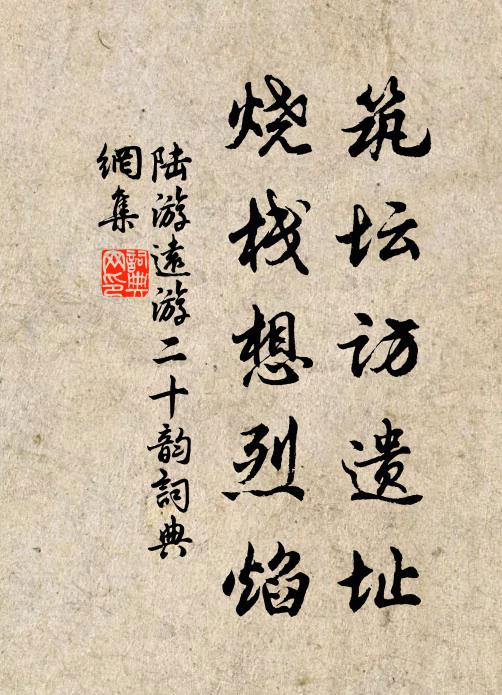 筑坛访遗址
烧栈想烈焰
陆游远游二十韵词典
網集
詞典
网印